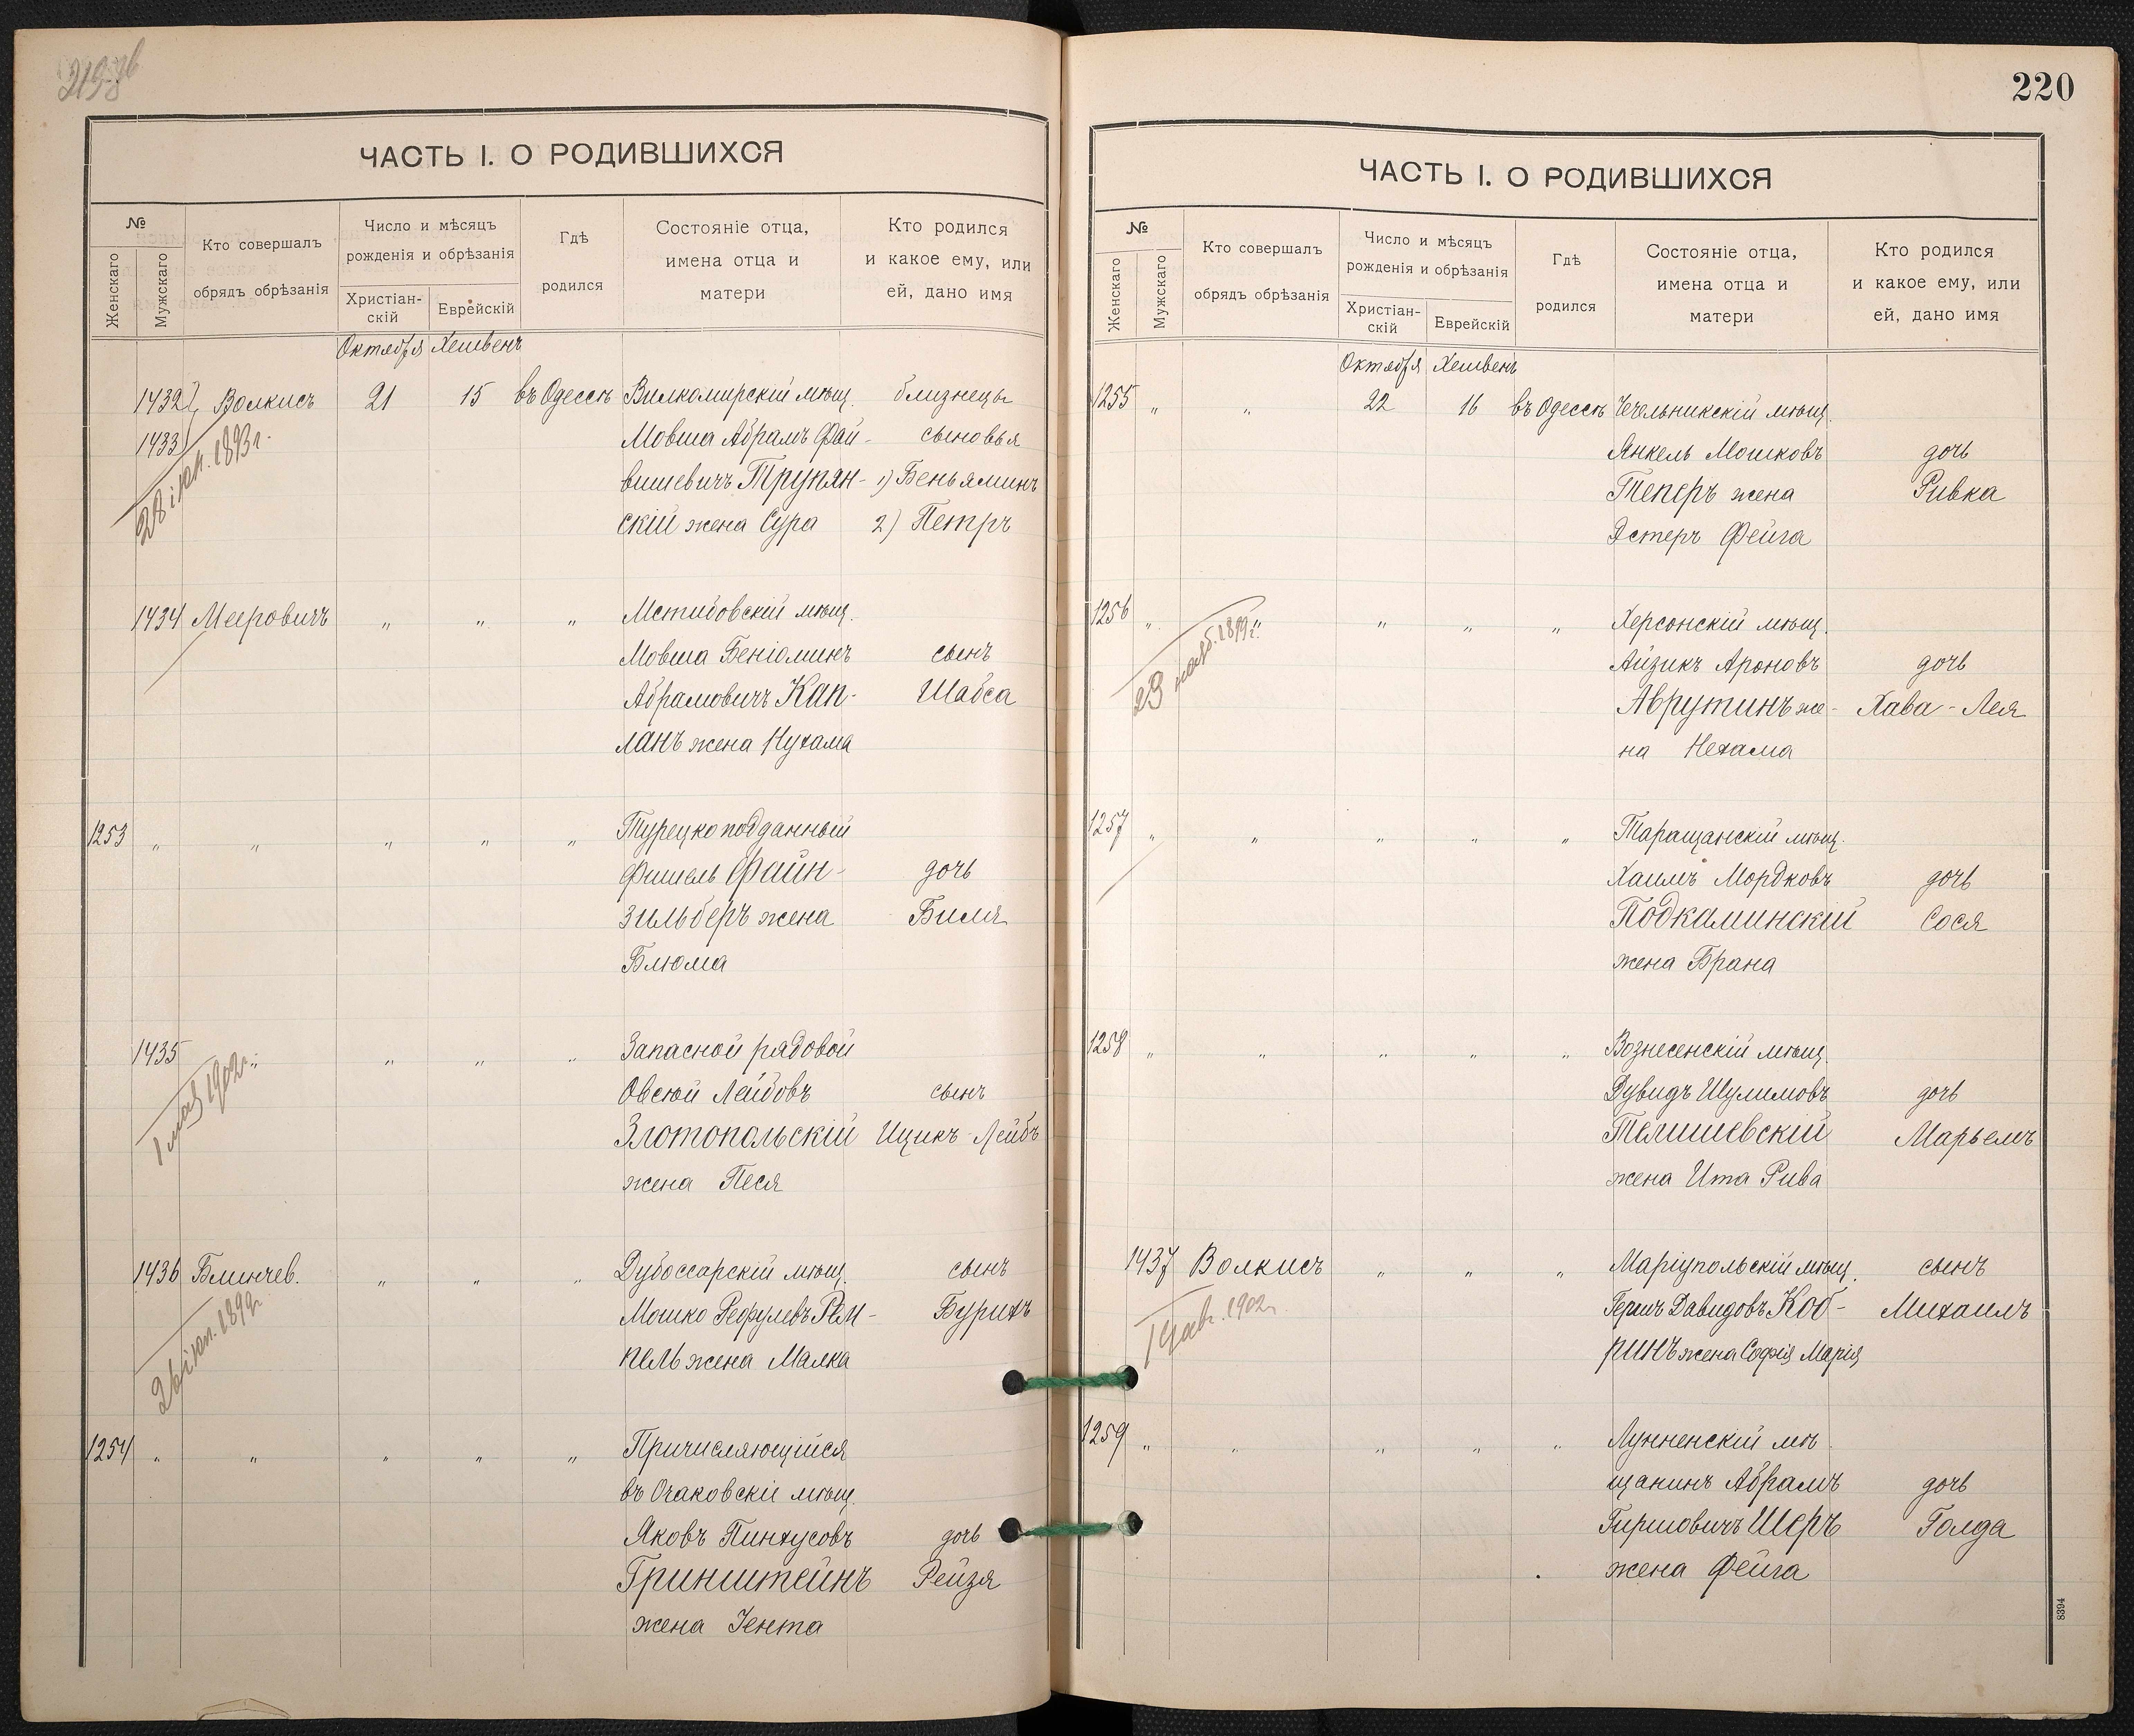 219 об
ЧАСТЬ I. О РОДИВШИХСЯ
№
Женскаго
Мужскаго
Кто совершалъ
обрядъ обрѣзанія
Число и мѣсяцъ
рожденія и обрѣзанія
Христіан-
скій
Еврейскій
Гдѣ
родился
Состояніе отца,
имена отца и
матери
Кто родился
и какое ему, или
ей, дано имя
Октября Хешвенъ
1432 Волкисъ 21 15 въ Одессѣ Вилкомирскій мѣщ. близнецы
1433 Мовша Абрамъ Фай- сыновья
вишевичъ Трупян- 1) Беньяминъ
скій жена Сура 2) Петръ
1434 Мееровичъ " " " Мстибовскій мѣщ.
Мовша Беніоминъ сынъ
Абрамовичъ Кап- Шабса
ланъ жена Нухама
1253 " " " " " Турецкоподданный
Фишель Файн- дочь
зильберъ жена Биля
Блюма
1435 " " " " Запасной рядовой
Овсюй Лейбовъ сынъ
Злотопольскій Ицикъ-Лейбъ
жена Песя
1 1902 г.
1436 Блинчев. " " " Дубоссарскій мѣщ. сынъ
Мошко Рефулевъ Рем- Бурихъ
пель жена Малка
1254 " " " " " Причисляющійся
въ Очаковскіе мѣщ.
Яковъ Пинхусовъ дочь
Гринштейнъ Рейзя
жена Іента
220
ЧАСТЬ I. О РОДИВШИХСЯ
№
Женскаго
Мужскаго
Кто совершалъ
обрядъ обрѣзанія
Число и мѣсяцъ
рожденія и обрѣзанія
Христіан-
скій
Еврейскій
Гдѣ
родился
Состояніе отца,
имена отца и
матери
Кто родился
и какое ему, или
ей, дано имя
Октября Хешвенъ
1255 " " 22 16 въ Одессѣ Чечельникскій мѣщ.
Янкель Мошковъ дочь
Теперъ жена Ривка
Эстеръ Фейга
1256 " " " " " Херсонскій мѣщ.
23 нояб. 1899 г.
Айзикъ Ароновъ дочь
Аврутинъ же- Хава-Лея
на Нехама
1257 " " " " " Таращанскій мѣщ.
Хаимъ Мордковъ дочь
Подкаминскій Сося
жена Брана
1258 " " " " " Вознесенскій мѣщ.
Дувидъ Шулимовъ дочь
Телишевскій Марьемъ
жена Ита Рива
1437 Волкисъ " " " Маріупольскій мѣщ. сынъ
Гершъ Давидовъ Коб- Михаилъ
ринъ жена Софія Марія
1902 г.
1259 " " " " " Лунненскій мѣ-
щанинъ Абрамъ дочь
Гиршовичъ Шеръ Голда
жена Фейга
8394